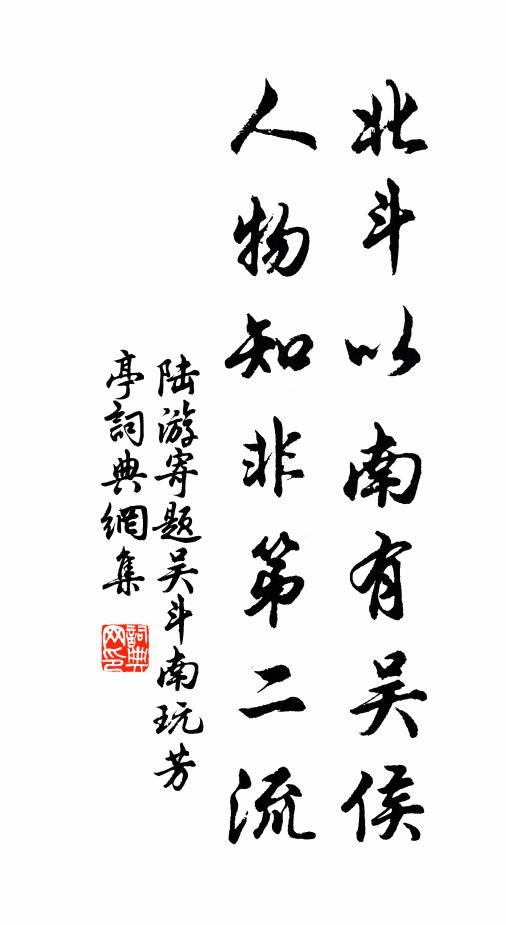 北斗以南有吴侯
人物知非第二流
陆游寄题吴斗南玩芳
亭詞典網集
詞典
网印